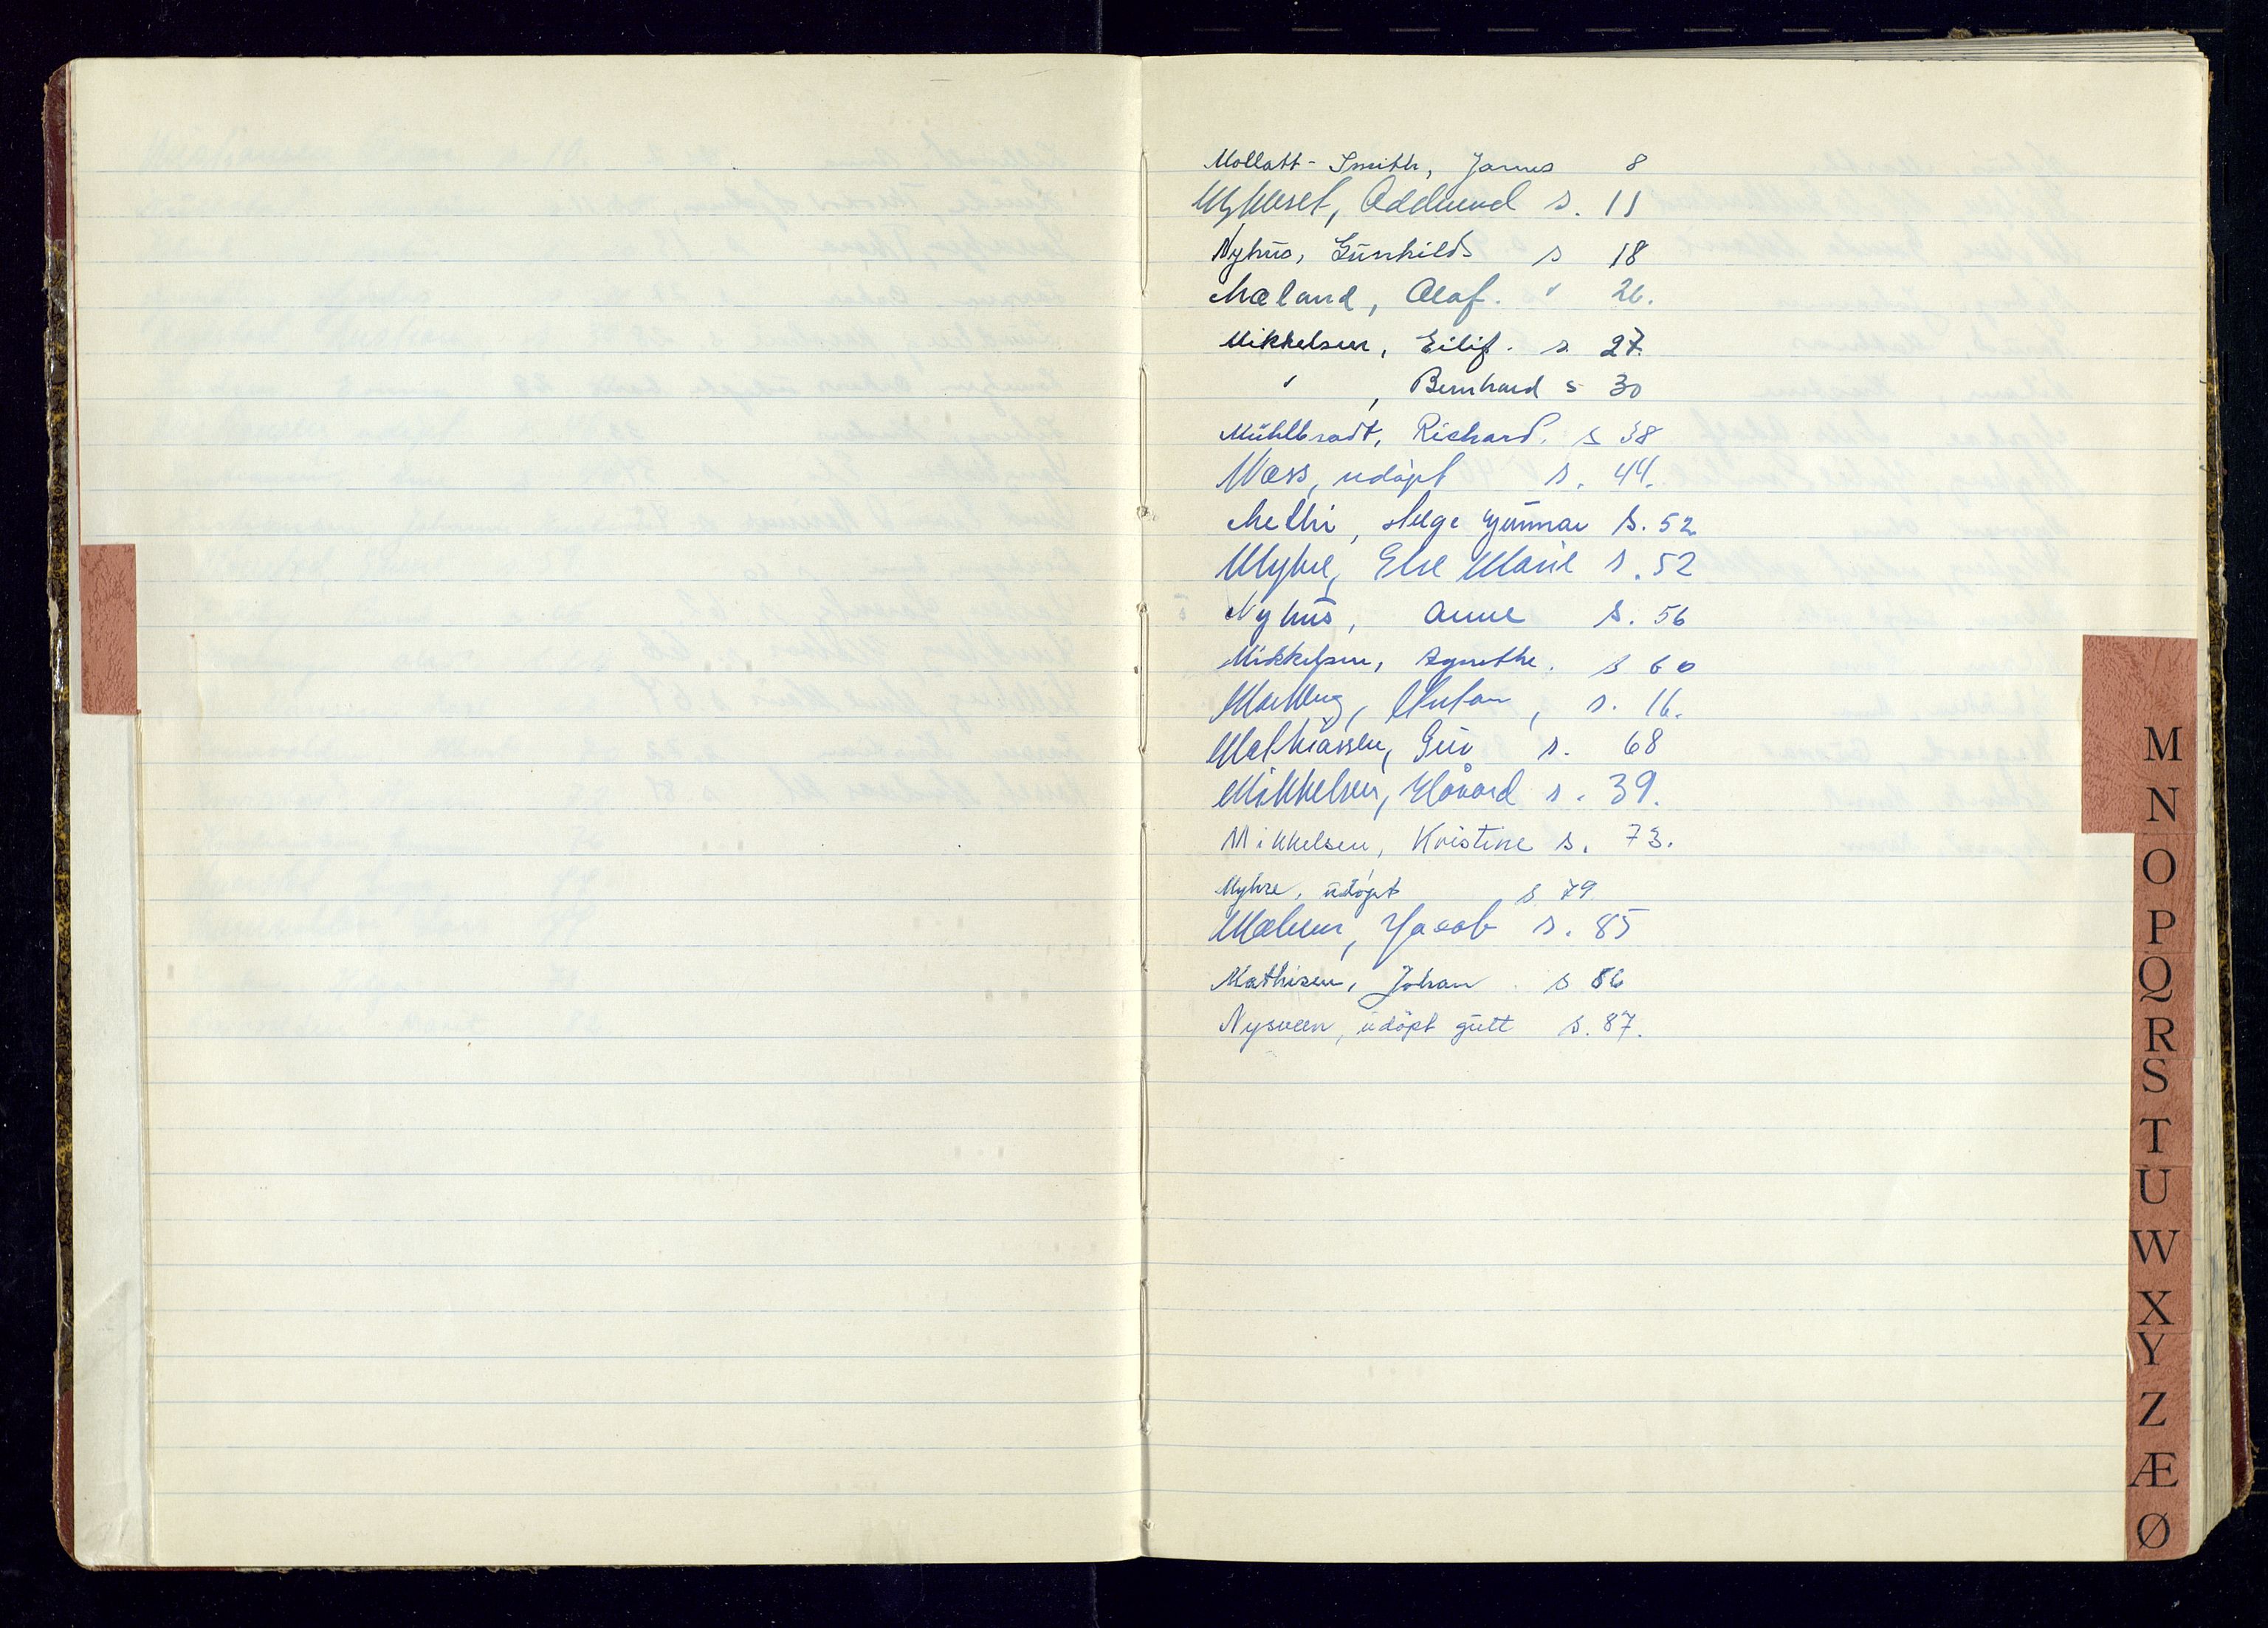 Mollatt-Smith, James 8
Myhuset, Oddmund s. 11
Nyhus, Gunhild s 18
Mæland, Olaf. " 26.
Mikkelsen, Eilif. s. 27.
" , Bernhard s 30
Mühlbradt, Richard. s 38
Moss, udöpt s. 44.
Melhi, Helge Gunnar s. 52
Myhre, Else Marie s. 52
Nyhus, Anne s. 56
Mikkelsen, Agnethe. s 60
s. 16.
Mathiassen, Guv s. 68
Mikkelsen, Håvard s. 39.
Mikkelsen, Kristine s. 73.
Myhre, udöpt s 79
Jacob s. 85
Mathisen, Johan s 86
Nysveen, udöpt gutt s. 87.
M
N
O
P
Q
R
S
T
U
W
X
Y
Z
Æ
Ø